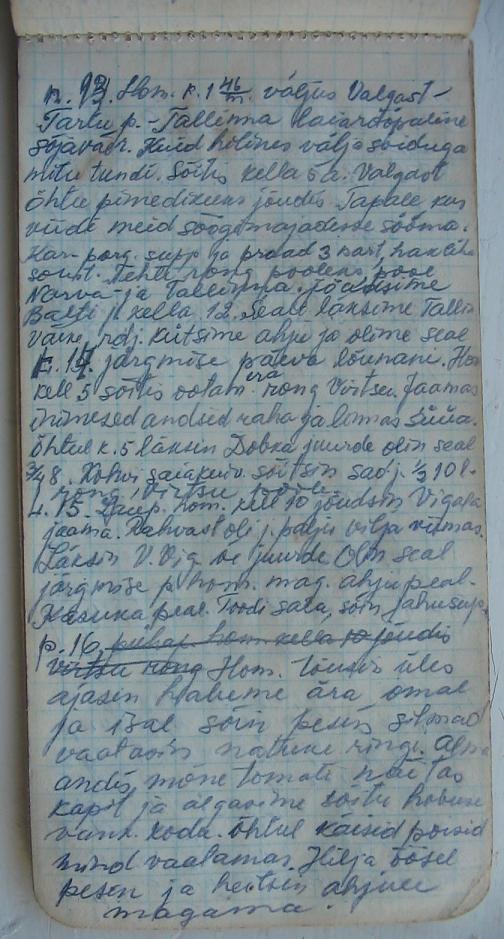 n. 13. Hom. k. 1 46/m. väljus Valgast-
Tartu p.-Tallinna laiarööpaline
sõjaväer. Kuid hilines välja sõiduga
mitu tundi. Sõitis kella 5 a. Valgast
Õhtu pimedikens jõudis Tapale kus
viidi meid söögimajadesse sööma.
Kar- porg. supp ja praad 3 kart,
soust. Tehti rong pooleks pool
Narva ja Tallinna. Jõudsime
Balti j. kella 12. Sealt läksime Tallin
väike rdj. kütsime ahju ja olime seal
k. 14. järgmise päeva lõunani. Hom
kell 5 sõitis ootam. ära rong Virtsu. Jaamas
inimesed andsid raha ja loomas süüa.
Õhtul k. 5 läksin Dobka juurde olin seal
3/4 8. Kohvi saiakuiv. sõitsin sadj. 1/2 10 l.
rong Virtsu
L. 15. Laup. hom. kell 10 jõudsin Vigala
jaama. Rahvast oli j. palju vilja viimas.
Läksin V. Vig. juurde Olin seal
järgmise p. hom. mag. ahju peal.
Kasuka peal. Toodi sala, sõin jahusuppi
p. 16, pühap. hom kella 10 jõudis
Virtsu rong Hom. tõusin üles
ajasin habeme ära omal
ja isal sõin pesin silmad
vaatasin natuke ringi. Alma
andis mõne tomati näitas
kapit ja algasime sõitu hobuse
vank. kodu. Õhtul käisid poisid
mind vaatamas. Hilja öösel
pesin ja heitsin ahjule
magama.